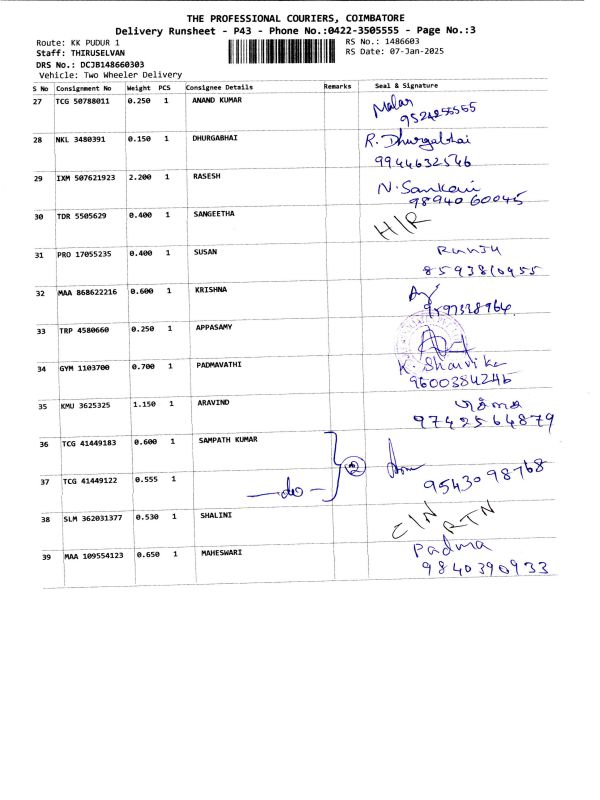 THE PROFESSIONAL COURIERS, COIMBATORE
Delivery Runsheet - P43 - Phone No.:0422-3505555 - Page No.:3
Route: KK PUDUR 1 RS No.: 1486603
Staff: THIRUSELVAN RS Date: 07-Jan-2025
DRS No.: DCJB148660303
Vehicle: Two Wheeler Delivery
S No Consignment No Weight PCS Consignee Details Remarks Seal & Signature
27 TCG 50788011 0.250 1 ANAND KUMAR Malar
9524255555
28 NKL 3480391 0.150 1 DHURGABHAI R. Dhurgabhai
9944632546
29 IXM 507621923 2.200 1 RASESH N. Sankari
9894060045
30 TDR 5505629 0.400 1 SANGEETHA H/R
31 PRO 17055235 0.400 1 SUSAN Ranju
8593810955
32 MAA 868622216 0.600 1 KRISHNA
33 TRP 4580660 0.250 1 APPASAMY
34 GYM 1103700 0.700 1 PADMAVATHI K. Sharvika
9600384246
35 KMU 3625325 1.150 1 ARAVIND
9742564879
36 TCG 41449183 0.600 1 SAMPATH KUMAR
37 TCG 41449122 0.555 1 —do— 2 9543098768
38 SLM 362031377 0.530 1 SHALINI CIN RTN
39 MAA 109554123 0.650 1 MAHESWARI Padma
9840390933